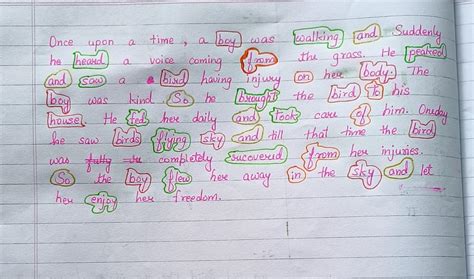 Once upon a time, a boy was walking and Suddenly
he heard a voice coming from the grass. He peaked
and saw a bird having injury on her body. The
boy was kind So he brought the bird to his
house. He fed her daily and took care of him. Oneday
he saw birds flying sky and till that time the bird
was completely recovered from her injuries.
So the boy flew her away in the sky and let
her enjoy her freedom.